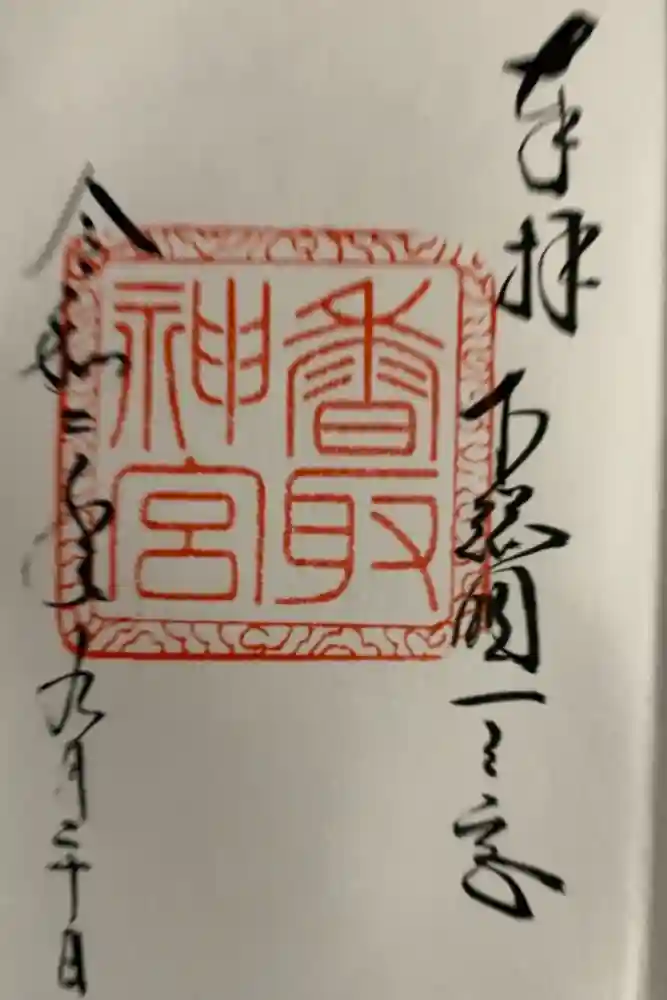 奉拝
下総國一之宮
香取
神宮
令和二年九月二十日